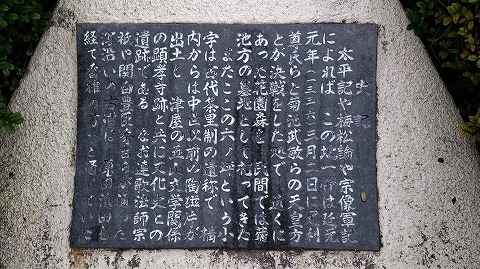 史記
太平記や梅松論や宗像軍記
によれば この地一帯は延元
元年(一三三六)三月二日に足利
尊氏らと菊池武敏らの天皇方
とが決戦をした地で 近くに
あった花園森を 民間では菊
池方の墓地として祀ってきた
まだここの六ノ坪という小
字は古代条里制の遺称で 橋
内からは中世以前の陶磁片が
出土し 津屋の五山文学関係
の顕孝寺跡と共に文化史上の
遺跡である なお連歌法師宗
祇や関白豊臣秀吉らが通った
川沿いの古道は 浜田
経て香椎の方へと通じていた